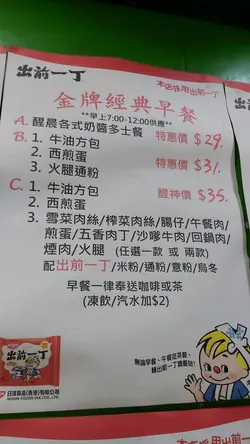 出前一丁
本店採用出前一丁
金牌經典早餐
**早上7:00-12:00供應**
A. 醒晨各式奶醬多士餐 特惠價 $29.
B. 1. 牛油方包 特惠價 $31.
2. 西煎蛋
3. 火腿通粉
C. 1. 牛油方包 醒神價 $35.
2. 西煎蛋
3. 雪菜肉絲/榨菜肉絲/腸仔/午餐肉/
煎蛋/五香肉丁/沙嗲牛肉/回鍋肉/
煙肉/火腿 (任選一款 或 兩款)
配出前一丁/米粉/通粉/意粉/烏冬
早餐一律奉送咖啡或茶
(凍飲/汽水加$2)
出前一丁
日清食品(香港)有限公司
NISSIN FOODS (H.K.) CO., LTD.
無論早餐、午餐定茶餐,
轉出前一丁貴觀啦!
本店採用出前